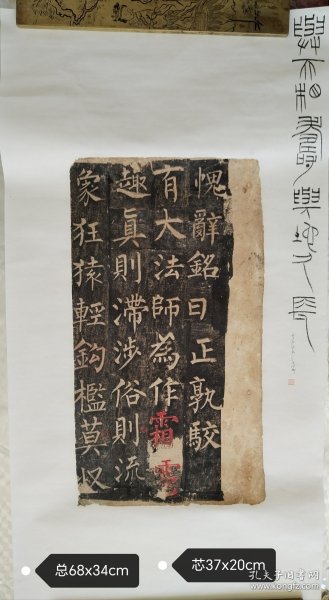 與天相壽與地久長
愧辭銘曰正孰駮
有大法師為作霜
趣真則滯涉俗則流
象狂猿輕鈎檻莫収
总68x34cm
芯37x20cm
孔夫子旧书网